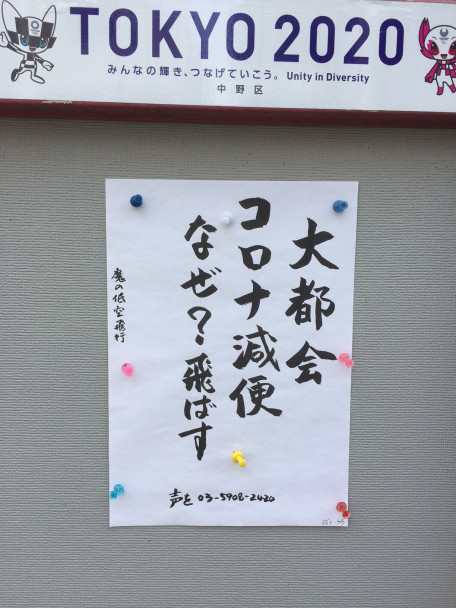 TOKYO 2020
みんなの輝き、つなげていこう。 Unity in Diversity
中野区
大都会
コロナ減便
なぜ?飛ばす
魔の低空飛行
声を 03-5908-2420